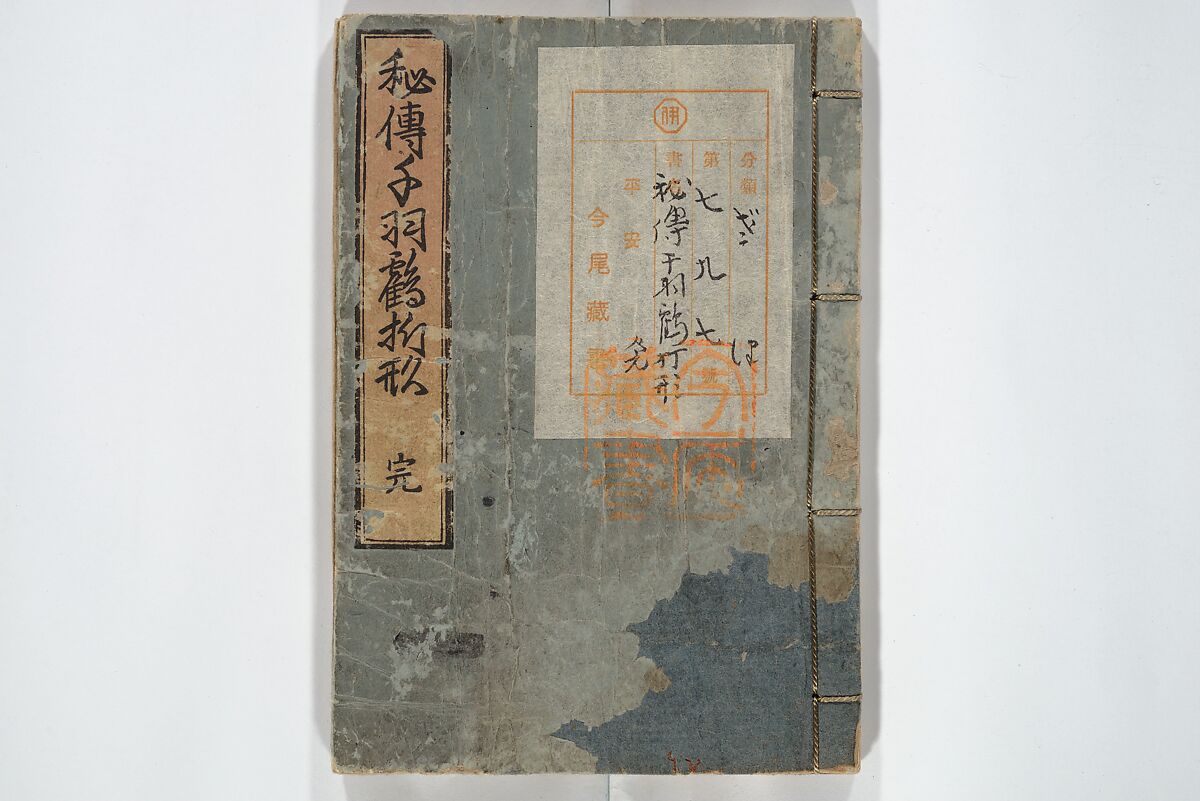 秘傳千羽靏折形
完
分類
第七九七号
書名 秘傳千羽鶴折形
平安
今尾藏書